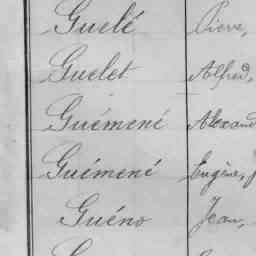 Guelé Pierre,
Guelet Alfred,
Guémené Alexand
Guémené Eugène, J
Guéno Jean,